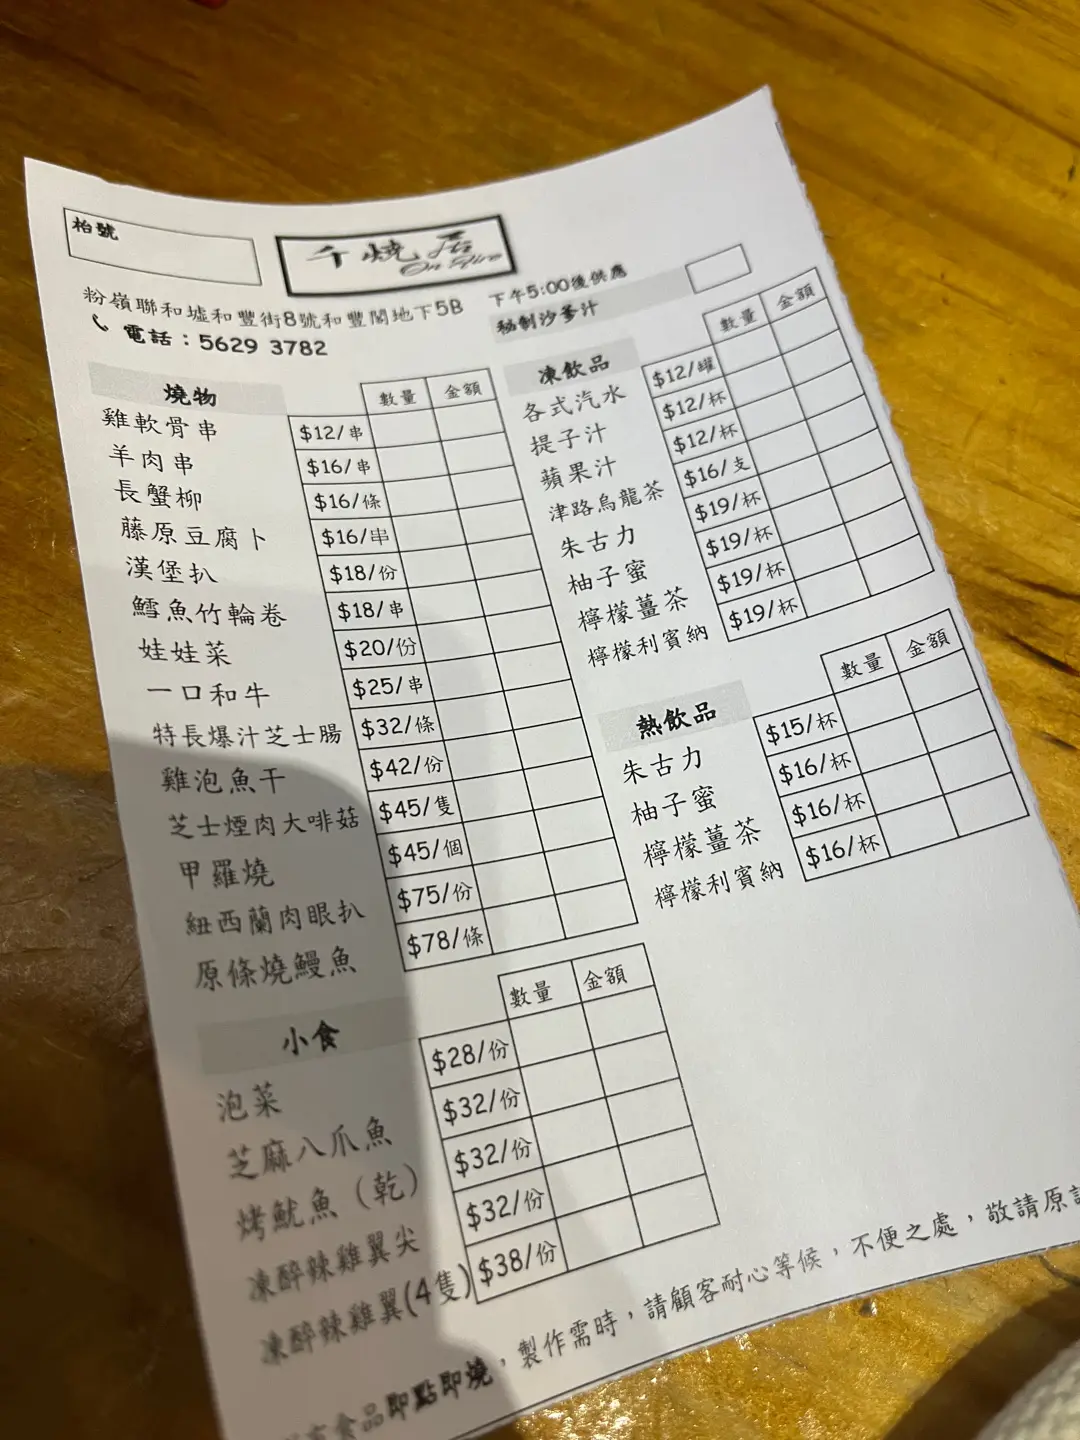 枱號
千燒店
On Fire
粉嶺聯和墟和豐街8號和豐閣地下5B
電話：5629 3782
下午5:00後供應
秘制沙爹汁
燒物 數量 金額
雞軟骨串 $12/串
羊肉串 $16/串
長蟹柳 $16/條
藤原豆腐卜 $16/串
漢堡扒 $18/份
鱈魚竹輪卷 $18/串
娃娃菜 $20/份
一口和牛 $25/串
特長爆汁芝士腸 $32/條
雞泡魚干 $42/份
芝士煙肉大啡菇 $45/隻
甲羅燒 $45/個
紐西蘭肉眼扒 $75/份
原條燒鰻魚 $78/條
小食 數量 金額
泡菜 $28/份
芝麻八爪魚 $32/份
烤魷魚（乾） $32/份
凍醉辣雞翼尖 $32/份
凍醉辣雞翼(4隻) $38/份
凍飲品 數量 金額
各式汽水 $12/罐
提子汁 $12/杯
蘋果汁 $12/杯
津路烏龍茶 $16/支
朱古力 $19/杯
柚子蜜 $19/杯
檸檬薑茶 $19/杯
檸檬利賓納 $19/杯
熱飲品 數量 金額
朱古力 $15/杯
柚子蜜 $16/杯
檸檬薑茶 $16/杯
檸檬利賓納 $16/杯
食品即點即燒，製作需時，請顧客耐心等候，不便之處，敬請原